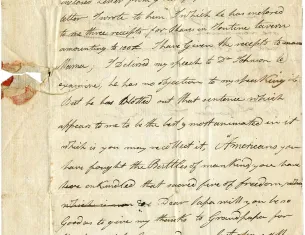 letter I wrote to him, which he has
to me three receipts for Shares in Tontine tavern
amounting to 100£. I have Given the receipts to
Mama, I delivered my speech to Dr Johnson to
examine, he has no objection to my speaking it
but he has blotted out that sentence which
appears to me to be the best & most animated in it
which is you may recollect it, "Americans you
have fought the Battles of mankind, you have
have enkindled that sacred fire of freedom,
Dear Papa will you be so
Good as to give my thanks to Grandpapa for